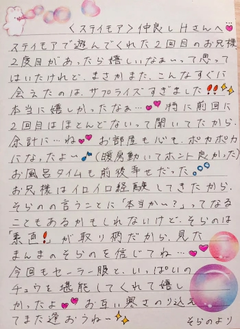 〈ステイモア〉仲良しHさんへ
ステイモアで遊んでくれた2回目のお兄様
2度目があったら嬉しいなぁ…って思って
はいたけれど、まさかまた、こんなすぐに
会えたのは、サプライズすぎました!!
本当に嬉しかったなぁ… 特に前回に
2回目はほとんどないって聞いてたから、
余計にーね お部屋も心もポカポカ
になったよー♪(暖房効いててホント良かった)
お風呂タイムも前後半せだった。
お兄様はイロイロ経験してきたから、
そらのの言うことに「本当かー?」ってなる
こともあるかもしれないけど…そらのは
「素直!!」が取り柄だから、見た
まんまのそらのを信じてね…
今回もセーラー服と、いっぱいの
チュウを堪能してくれて嬉し
かったよ お互い寒さのり込え
てまた逢おうねー
そらのより